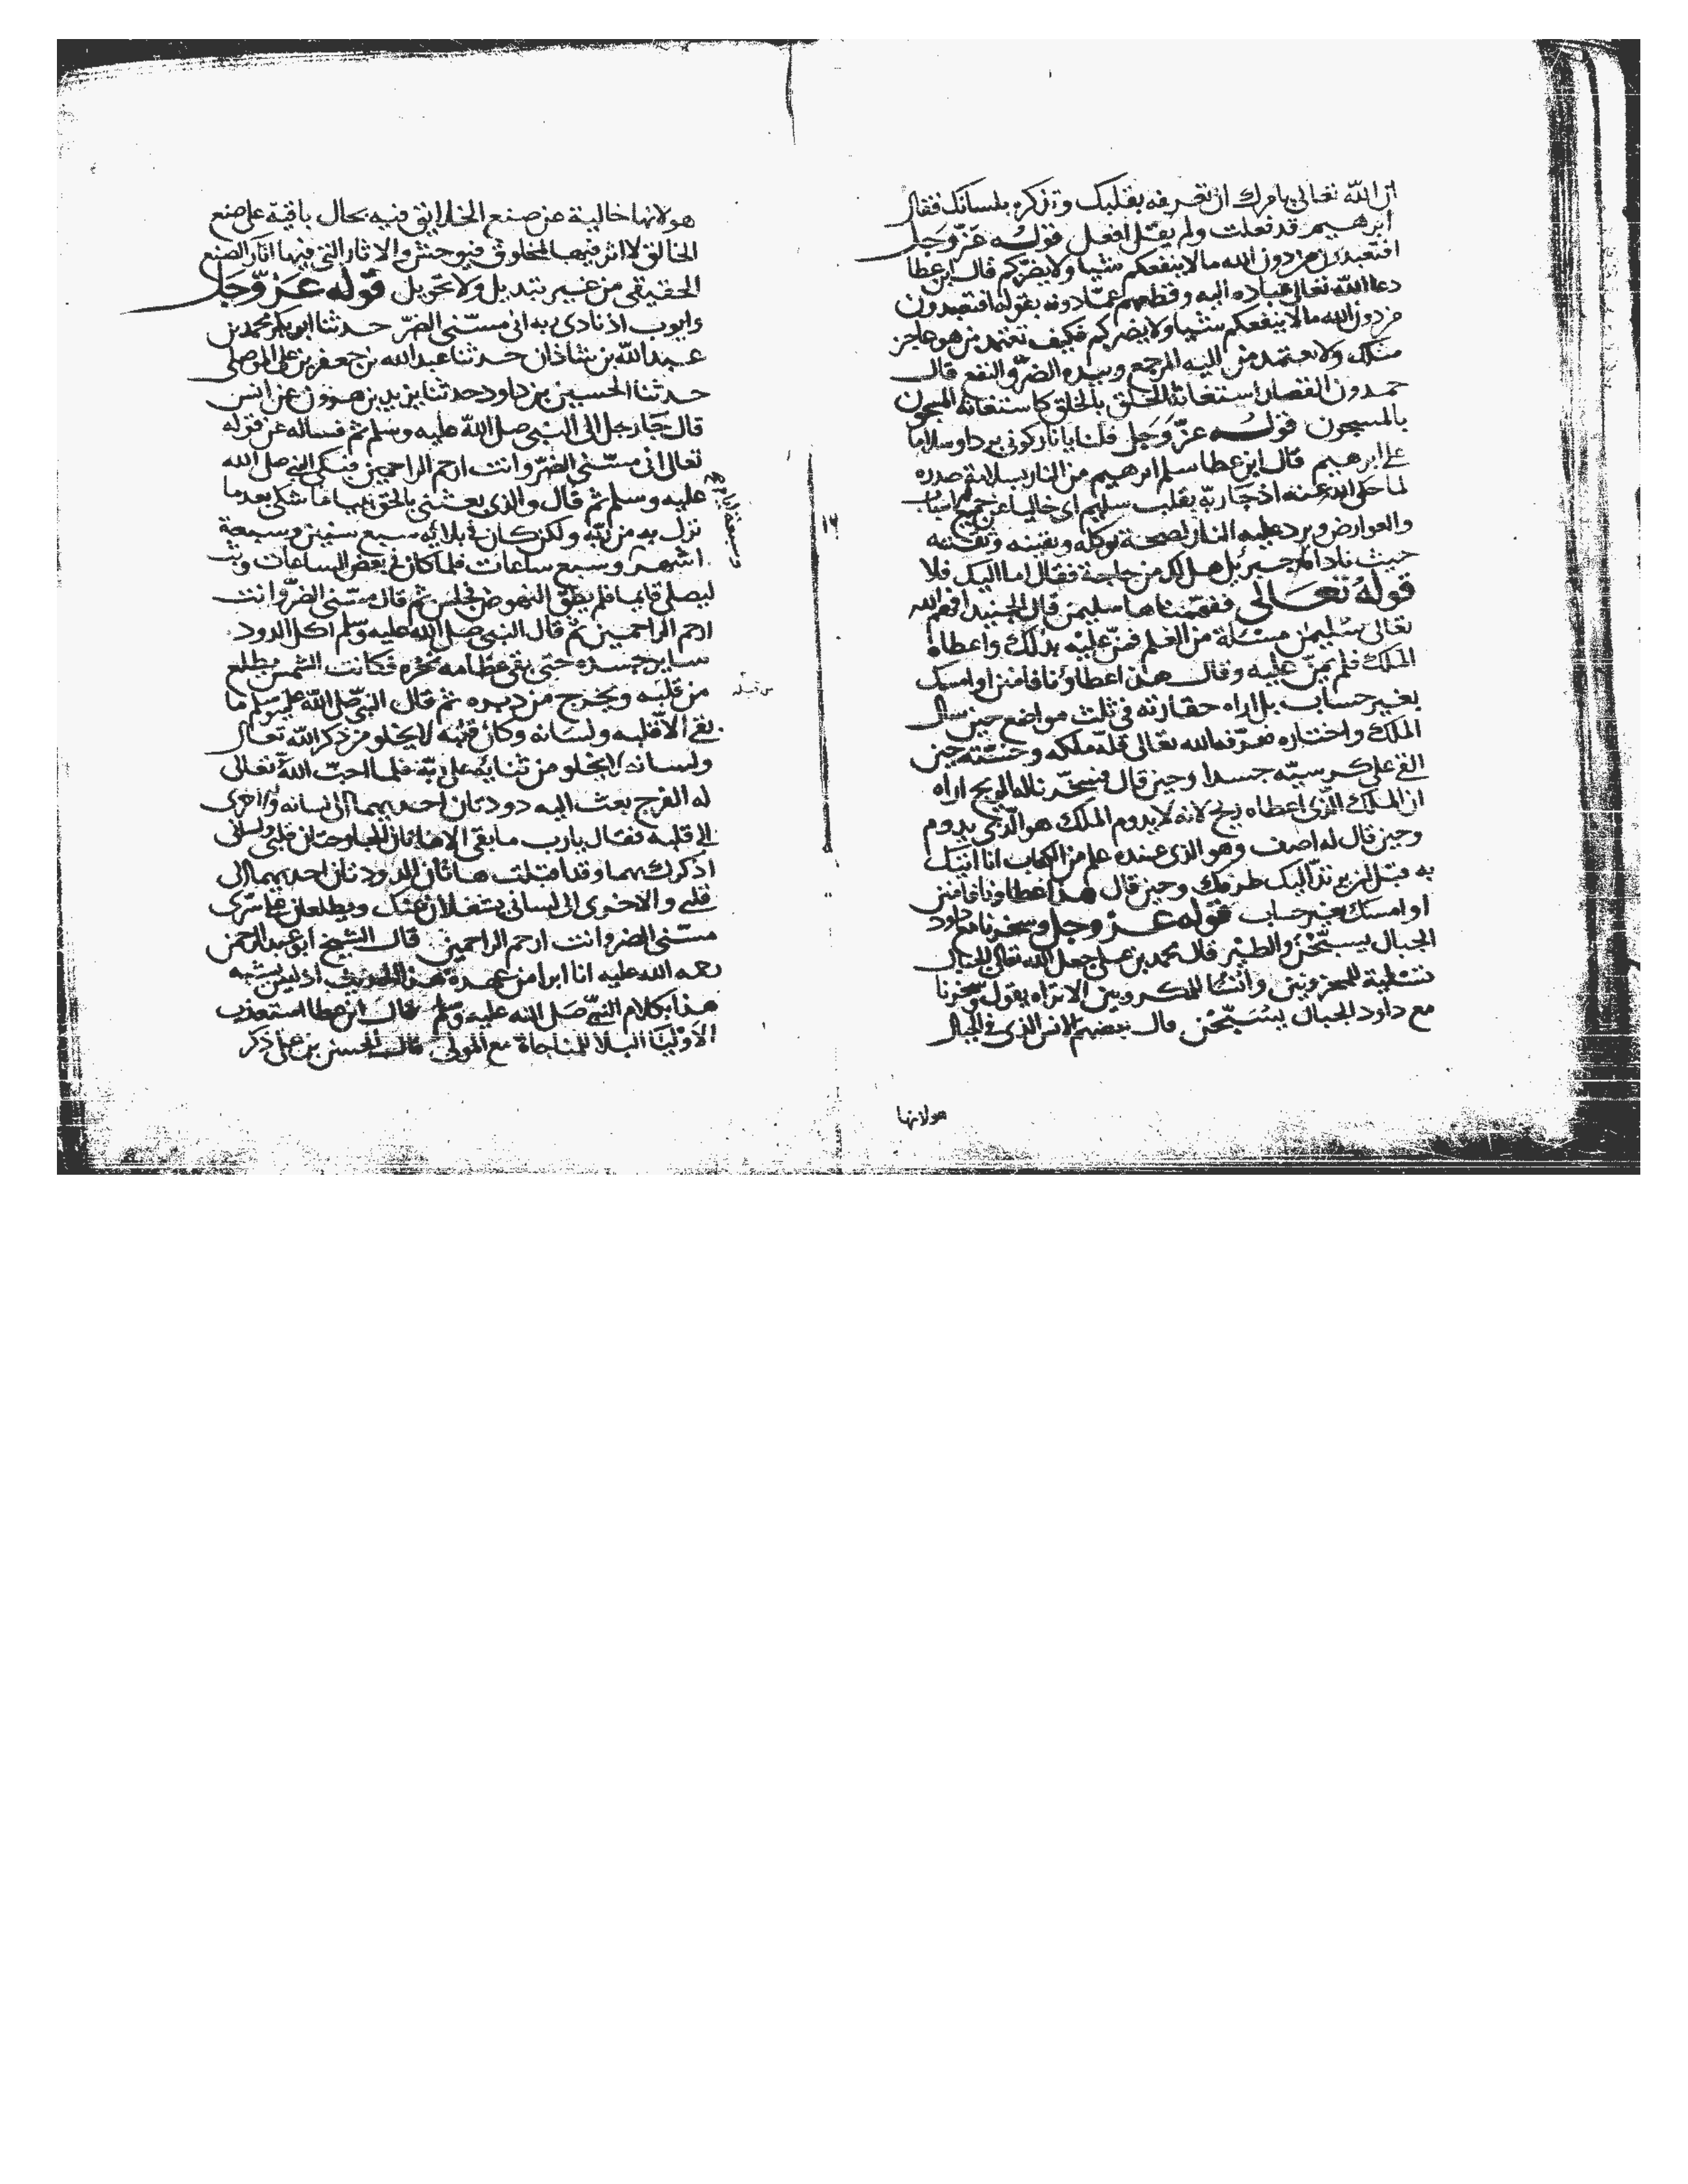 ان الله تعالى يامرك ان تعرفه بقلبك وتذكره بلسانك فقال
ابرهيم قد فعلت ولم يقل افعل قوله عزّ وجل
افتعبدون من دون الله مالا ينفعكم شيا ولا يضرّكم قال ابن عطا
دعا الله تعالى عباده اليه وقطعهم عمّا دونه بقوله افتعبدون
من دون الله مالا ينفعكم شيا ولا يضركم فكيف تعتمد من هو عاجز
مثلك ولا تعتمد من اليه المرجع وبيده الضرّ والنفع قال
حمدون القصار استغاثة الخلق بالخلق كاستغاثة المسجون
بالمسجون قوله عزّ وجل قلنا يا نار كوني بردا وسلاما
على ابرهيم قال ابن عطا سلم ابرهيم من النار بسلامة صدره
لما حكى الله عنه اذ جا ربّه بقلب سليم اى خاليا عن جميع اسباب
والعوارض وبرد عليه النار لصحة توكله ويقينه وثقته
حيث ناداه جبرئيل هل لك من حاجة فقال اما اليك فلا
قوله تعالى ففهمناها سليمن قال الجنيد افهم الله
تعالى سليمن مسئلة من العلم فمنّ عليه بذلك واعطاه
الملك فلم يمنّ عليه وقال هذا عطاؤنا فامنن او امسك
بغير حساب بل اراه حقارته في ثلث مواضع حين سال
الملك واختاره فعرّفه الله تعالى قلة ملكه وخسّته حين
القى على كرسيّه جسدا وحين قال فسخّرنا له الريح اراه
ان الملك الذى اعطاه ريح لانه لا يدوم الملك هو الذى يدوم
وحين قال له اصف وهو الذى عنده علم من الكتاب انا اتيك
به قبل ان يرتدّ اليك طرفك وحين قال هذا عطاونا فامنن
او امسك بغير حساب قوله عزّ وجل وسخرنا مع داود
الجبال يسبّحن والطير قال محمد بن على جعل الله تعالى الجبال
تسلية للمحزونين وانسا للمكروبين الا تراه يقول وسخرنا
مع داود الجبال يسبّحن قال بعضهم الانس الذى في الجبال
هولانها
هو لانها خالية عن صنع الخلايق فيه بحال باقية على صنع
الخالق لا اثر فيها لمخلوق فيوحش والاثار التى فيها اثار الصنع
الحقيقى من غير تبديل ولا تحويل قوله عزّ وجل
وايوب اذ نادى ربه انى مسّنى الضرّ حدثنا ابو بكر محمد بن
عبد الله بن شاذان حدثنا عبد الله بن جعفر بن على الموصلى
حدثنا الحسين بن داود حدثنا يزيد بن هرون عن انس
قال جا رجل الى النبى صلى الله عليه وسلم ثم فساله عن قوله
تعالى انى مسّنى الضرّ وانت ارحم الراحمين فبكى النبى صلى الله
عليه وسلم ثم قال والذى بعثنى بالحق نبيا ما شكى بعد ما
نزل به من ربّه ولكن كان في بلائه سبع سنين وسبعة
اشهر وسبع ساعات فلما كان في بعض الساعات وثب
ليصلى قايما فلم يطق النهوض فجلس ثم قال مسّنى الضرّ وانت
ارحم الراحمين ثم قال النبى صلى الله عليه وسلم اكل الدود
ساير جسده حتى بقى عظامه نخرة فكانت الشمس يطلع
من قلبه ويخرج من دبره ثم قال النبىّ صلى الله عليه وسلم ما
بقى الا قلبه ولسانه وكان قلبه لا يخلو من ذكر الله تعالى
ولسانه لا يخلو من ثنايه على ربّه فلما احبّ الله تعالى
له الفرج بعث اليه دودتان احديهما الى لسانه والاخرى
الى قلبه فقال يارب ما بقى الا هاتان الجارحتان قلبى ولسانى
اذكرك بهما وقد اقبلت هاتان الدودتان احديهما الى
قلبى والاخرى الى لسانى يشغلان عنك ويطلعان على سرّى
مسّنى الضر وانت ارحم الراحمين قال الشيخ ابو عبد الرحمن
رحمه الله عليه انا ابرا من عهدة هذا الحديث اذ ليس يشبه
هذا بكلام النبىّ صلى الله عليه وسلم قال ابن عطا استعذب
الاوليا البلا للمناجاة مع المولى قال الحسن بن على ذكر
من قبله